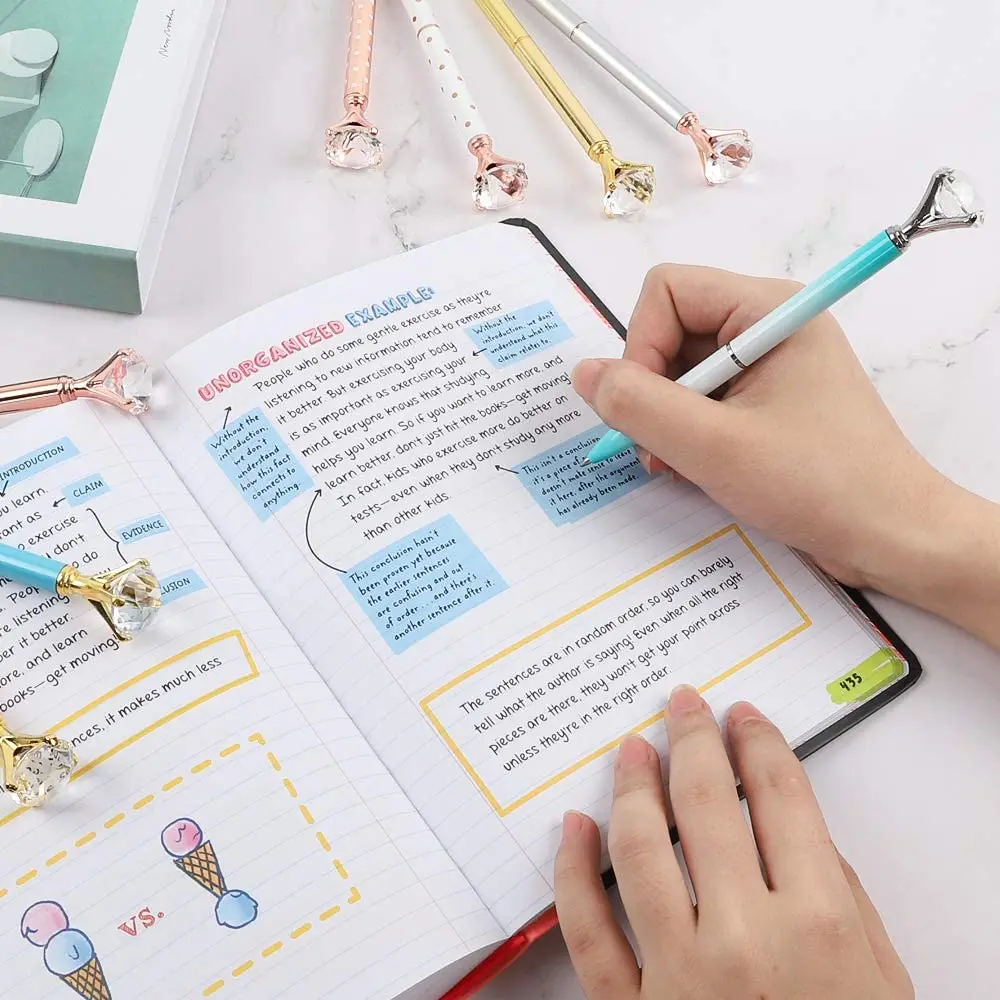 INTRODUCTION
u learn
ant as
CLAIM
exercise
don't
EVIDENCE
o do
s. Peop
USION
re listening
er it better.
ore, and learn
ooks—get moving
nces, it makes much less
VS.
UNORGANIZED EXAMPLE:
People who do some gentle exercise as they're
listening to new information tend to remember
it better. But exercising your body
is as important as exercising your
mind. Everyone knows that studying
helps you learn. So if you want to learn more, and
learn better, don't just hit the books—get moving
In fact, kids who exercise more do better on
tests—even when they don't study any more
than other kids.
Without the
introduction, we don't
understand what this
claim relates to.
Without the
introduction,
we don't
understand
how this fact
connects to
anything.
This isn't a conclusion
it's a piece of
doesn't make sense to leave
it here, after the argument
has already been made.
This conclusion hasn't
been proven yet because
the earlier sentences
are confusing and out
of order... and there's
another sentence after it.
The sentences are in random order, so you can barely
tell what the author is saying! Even when all the right
pieces are there, they won't get your point across
unless they're in the right order.
435